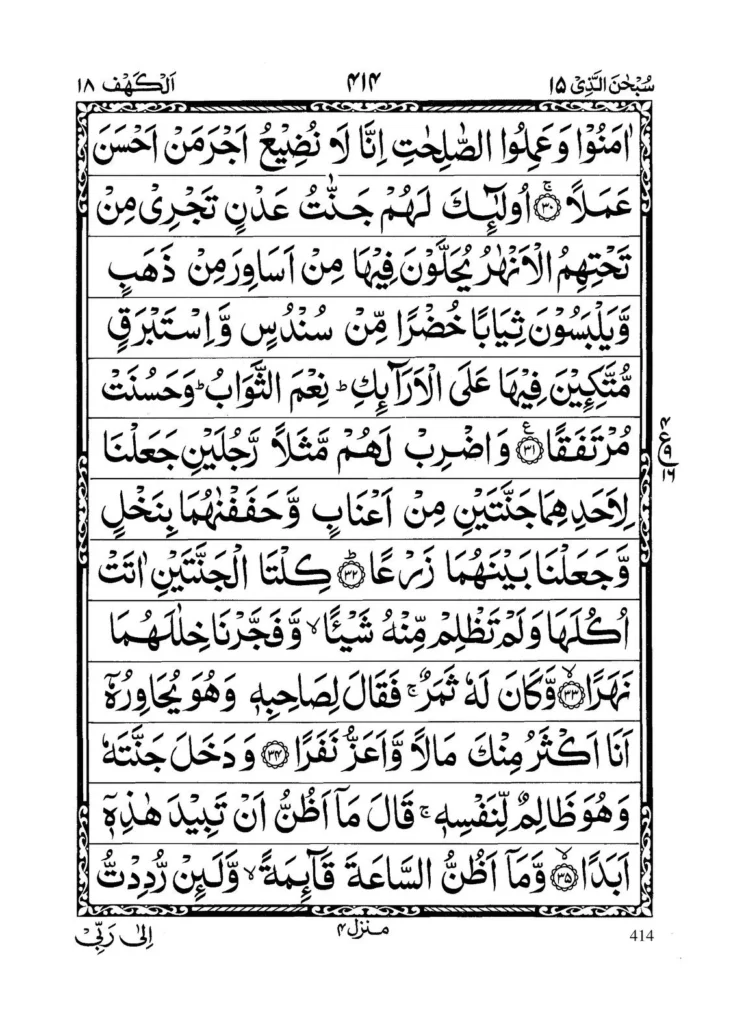 سُبْحٰنَ الَّذِیْ ۱۵ ۴۱۴ اَلْکَهْف ۱۸
اٰمَنُوْا وَعَمِلُوا الصّٰلِحٰتِ اِنَّا لَا نُضِیْعُ اَجْرَ مَنْ اَحْسَنَ
عَمَلًا ۚ﴿۳۰﴾ اُولٰٓئِكَ لَهُمْ جَنّٰتُ عَدْنٍ تَجْرِیْ مِنْ
تَحْتِهِمُ الْاَنْهٰرُ یُحَلَّوْنَ فِیْهَا مِنْ اَسَاوِرَ مِنْ ذَهَبٍ
وَّیَلْبَسُوْنَ ثِیَابًا خُضْرًا مِّنْ سُنْدُسٍ وَّاِسْتَبْرَقٍ
مُّتَّكِـِٕیْنَ فِیْهَا عَلَى الْاَرَآئِكِ ؕ نِعْمَ الثَّوَابُ ؕ وَحَسُنَتْ
مُرْتَفَقًا ﴿۳۱﴾ ع وَاضْرِبْ لَهُمْ مَّثَلًا رَّجُلَیْنِ جَعَلْنَا
۴ ع ۹ ۱۶
لِاَحَدِهِمَا جَنَّتَیْنِ مِنْ اَعْنَابٍ وَّحَفَفْنٰهُمَا بِنَخْلٍ
وَّجَعَلْنَا بَیْنَهُمَا زَرْعًا ؕ﴿۳۲﴾ كِلْتَا الْجَنَّتَیْنِ اٰتَتْ
اُكُلَهَا وَلَمْ تَظْلِمْ مِّنْهُ شَیْئًا ۙ وَّفَجَّرْنَا خِلٰلَهُمَا
نَهَرًا ۙ﴿۳۳﴾ وَّكَانَ لَهٗ ثَمَرٌ ۚ فَقَالَ لِصَاحِبِهٖ وَهُوَ یُحَاوِرُهٗۤ
اَنَا اَكْثَرُ مِنْكَ مَالًا وَّاَعَزُّ نَفَرًا ﴿۳۴﴾ وَدَخَلَ جَنَّتَهٗ
وَهُوَ ظَالِمٌ لِّنَفْسِهٖ ۚ قَالَ مَاۤ اَظُنُّ اَنْ تَبِیْدَ هٰذِهٖۤ
اَبَدًا ۙ﴿۳۵﴾ وَّمَاۤ اَظُنُّ السَّاعَةَ قَآئِمَةً ۙ وَّلَئِنْ رُّدِدْتُّ
414 منزل ۴ اِلٰى رَبِّیْ